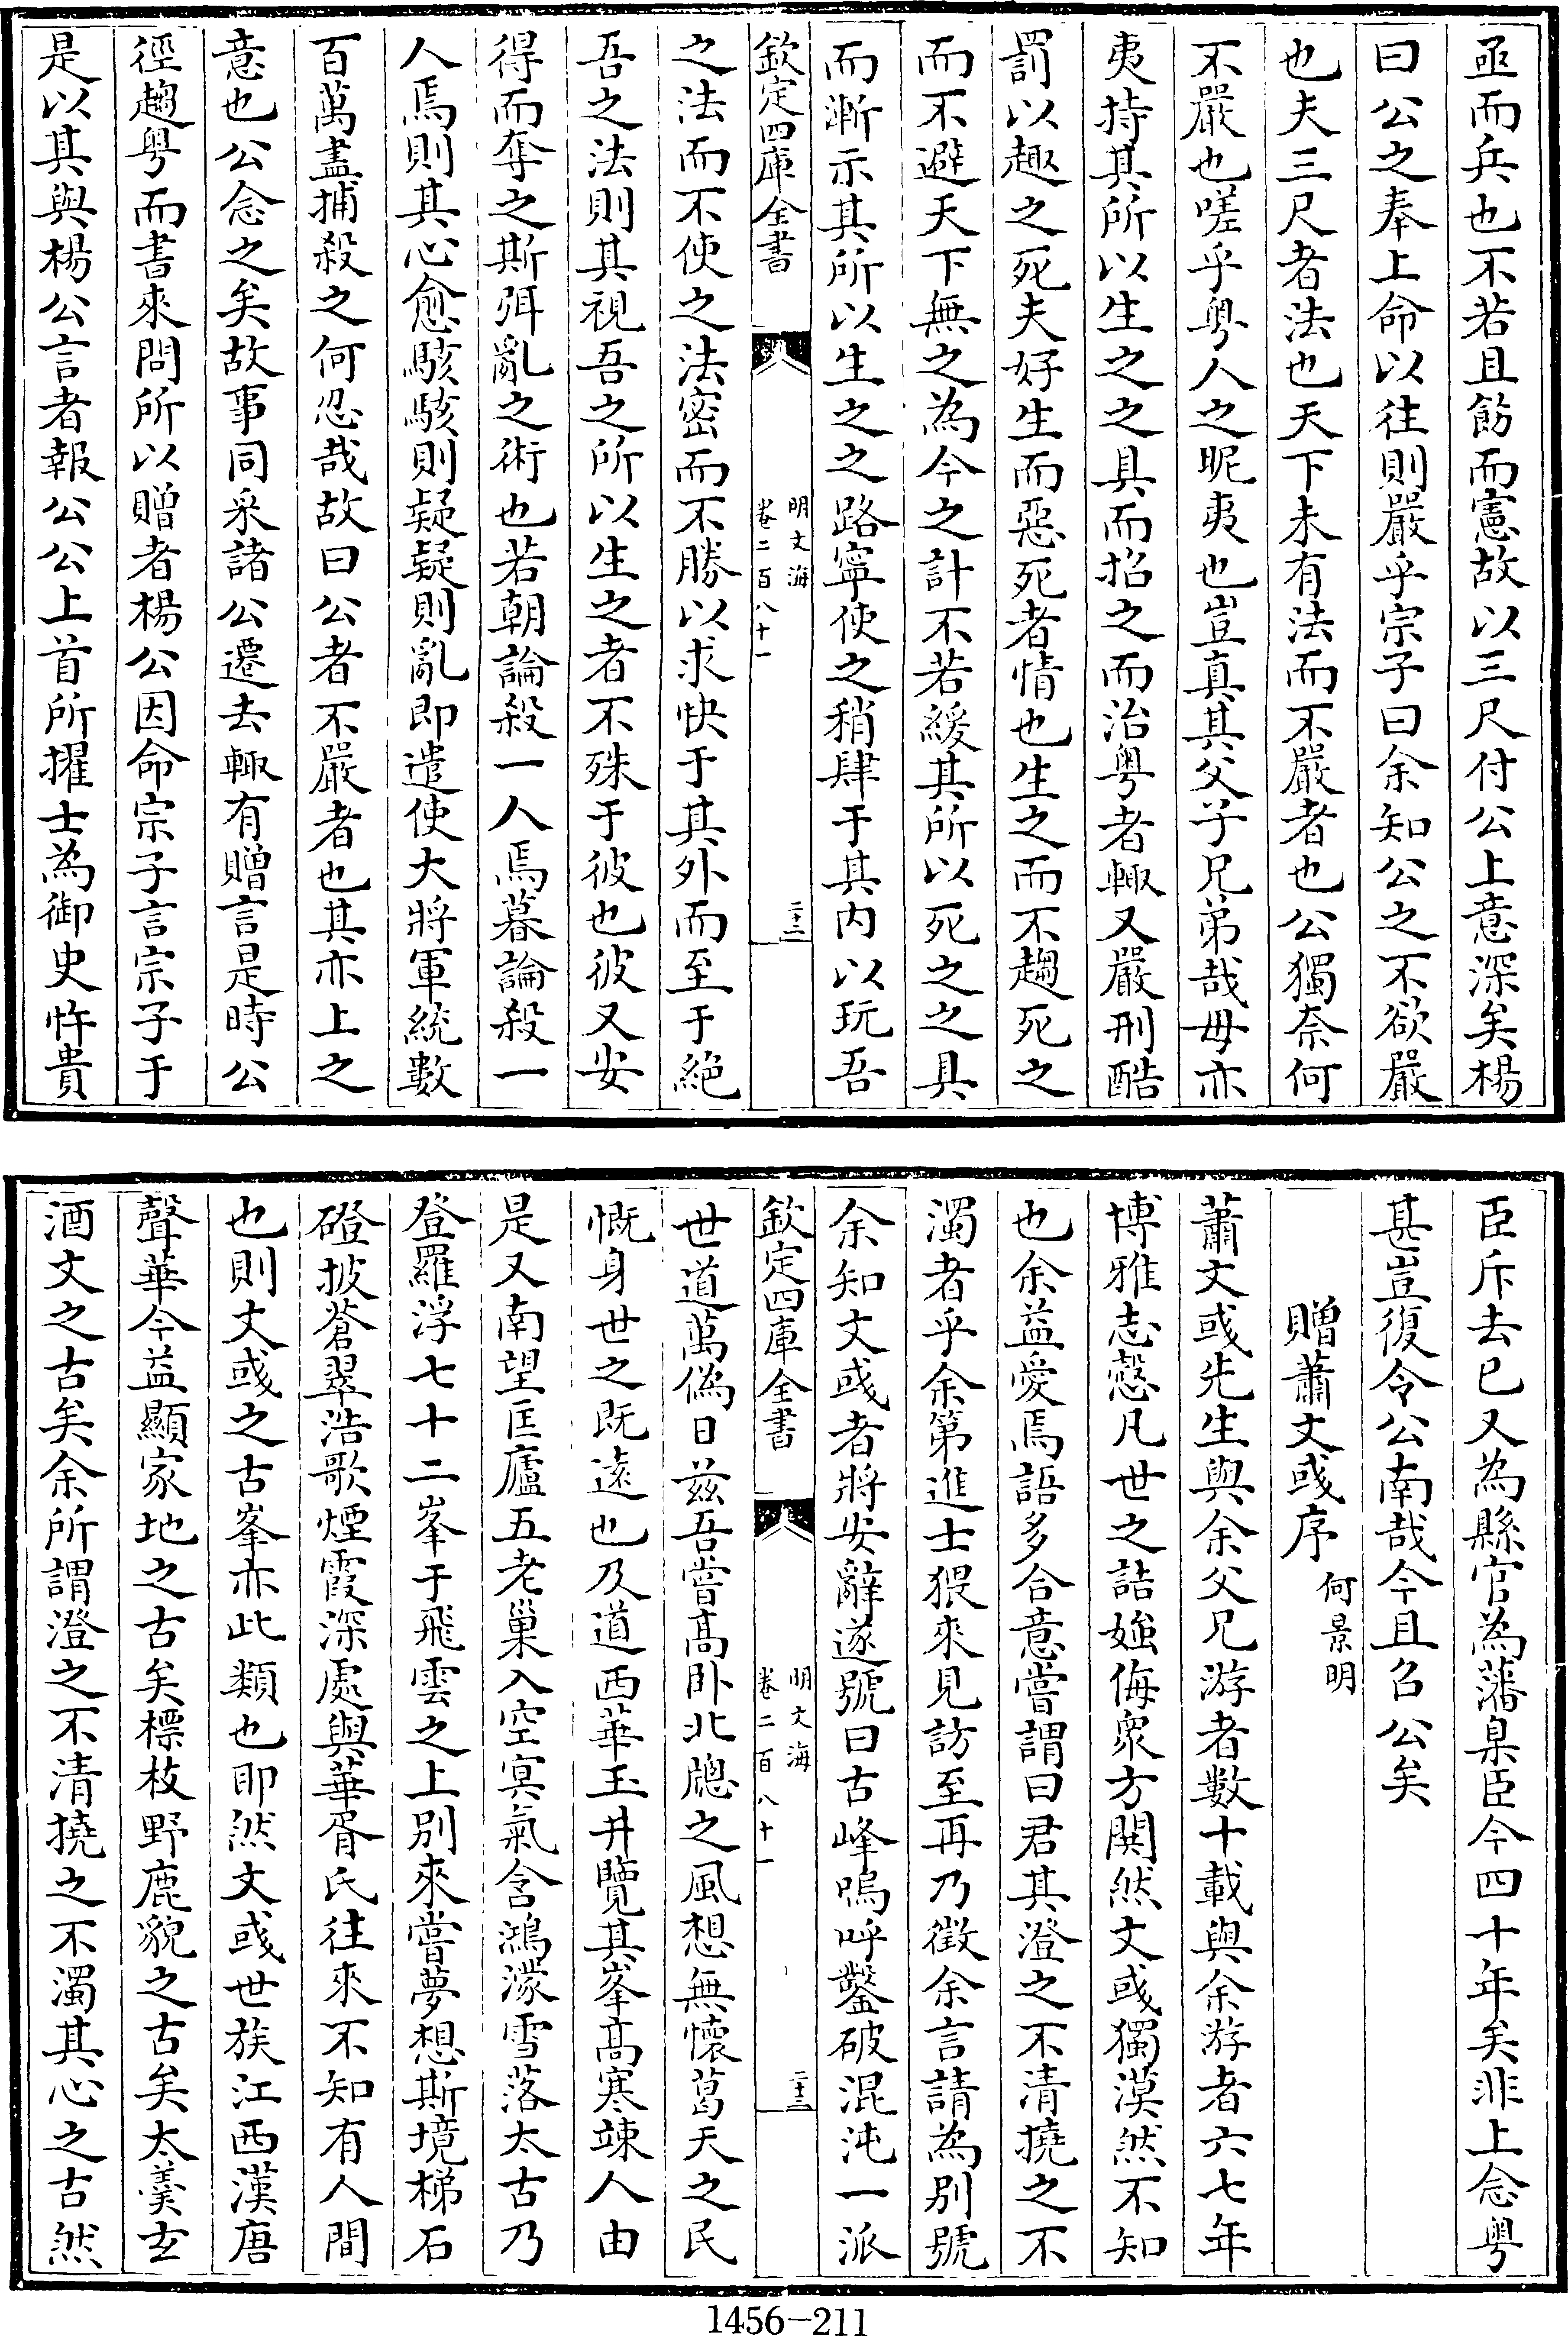 亟而兵也不若且飭而憲故以三尺付公上意深矣楊
曰公之奉上命以往則嚴乎宗子曰余知公之不欲嚴
也夫三尺者法也天下未有法而不嚴者也公獨奈何
不嚴也嗟乎粤人之昵夷也豈真其父子兄弟哉毋亦
夷持其所以生之之具而招之而治粤者輙又嚴刑酷
罰以趣之死夫好生而惡死者情也生之而不趨死之
而不避天下無之為今之計不若緩其所以死之之具
而漸示其所以生之之路寧使之稍肆于其内以玩吾
欽定四庫全書
明文海
卷二百八十一
二十二
之法而不使之法密而不勝以求快于其外而至于絶
吾之法則其視吾之所以生之者不殊于彼也彼又安
得而奪之斯弭亂之術也若朝論殺一人焉暮論殺一
人焉則其心愈駭駭則疑疑則亂即遣使大將軍統數
百萬盡捕殺之何忍哉故曰公者不嚴者也其亦上之
意也公念之矣故事同寀諸公遷去輙有贈言是時公
徑趨粤而書來問所以贈者楊公因命宗子言宗子于
是以其與楊公言者報公公上首所擢士為御史忤貴
臣斥去已又為縣官為藩臬臣今四十年矣非上念粤
甚豈復令公南哉今且召公矣
贈蕭文彧序
何景明
蕭文彧先生與余父兄游者數十載與余游者六七年
博雅志慤凡世之詰媸侮衆方閧然文彧獨漠然不知
也余益愛焉語多合意嘗謂曰君其澄之不清撓之不
濁者乎余第進士猥來見訪至再乃徵余言請為别號
余知文彧者將安辭遂號曰古峰嗚呼鑿破混沌一派
欽定四庫全書
明文海
卷二百八十一
二十三
世道萬偽日茲吾嘗髙卧北牕之風想無懷葛天之民
慨身世之既逺也及道西華玉井覽其峯髙寒竦人由
是又南望匡廬五老巢入空冥氣含鴻濛雪落太古乃
登羅浮七十二峯于飛雲之上别來嘗夢想斯境梯石
磴披蒼翠浩歌煙霞深處與華胥氏往來不知有人間
也則文彧之古峯亦此類也耶然文彧世族江西漢唐
聲華今益顯家地之古矣標枝野鹿貌之古矣太羮玄
酒文之古矣余所謂澄之不清撓之不濁其心之古然
1456-211